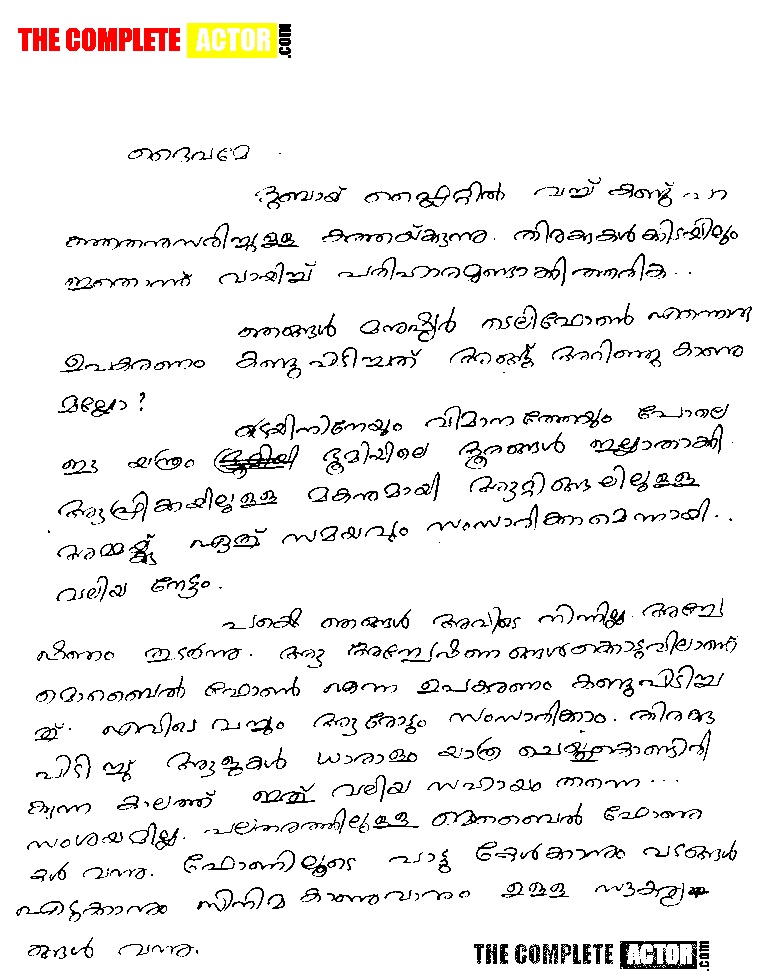 THE COMPLETE ACTOR .com
ദൈവമേ
ദുബായ് ഫ്ലൈറ്റിൽ വച്ച് കണ്ടു
കത്തയക്കുന്നു. തിരക്കുകൾക്കിടയിലും
ഇതൊന്ന് വായിച്ച് പരിഹാരമുണ്ടാക്കിത്തരിക..
ഞങ്ങൾ മനുഷ്യർ ടെലിഫോൺ എന്നൊരു
ഉപകരണം കണ്ടുപിടിച്ചത് അങ്ങ് അറിഞ്ഞു കാണു
മല്ലോ?
ട്രെയിനിനേയും വിമാനത്തേയും പോലെ
ഈ യന്ത്രം ഭൂമിയിലെ ദൂരങ്ങൾ ഇല്ലാതാക്കി.
ആഫ്രിക്കയിലുള്ള മകനുമായി ആറ്റിങ്ങലിലുള്ള
അമ്മയ്ക്ക് ഏത് സമയവും സംസാരിക്കാമെന്നായി..
വലിയ നേട്ടം.
പക്ഷെ ഞങ്ങൾ അവിടെ നിന്നില്ല. അന്വേ
ഷണം തുടർന്നു. ആ അന്വേഷണങ്ങൾക്കൊടുവിലാണ്
മൊബൈൽ ഫോൺ എന്ന ഉപകരണം കണ്ടുപിടിച്ച
ത്. എവിടെ വച്ചും ആരോടും സംസാരിക്കാം. തിരക്കു
പിടിച്ച ആളുകൾ ധാരാളം യാത്ര ചെയ്തുകൊണ്ടിരി
ക്കുന്ന കാലത്ത് ഇത് വലിയ സഹായം തന്നെ...
സംശയമില്ല. പലതരത്തിലുള്ള മൊബൈൽ ഫോണു
കൾ വന്നു. ഫോണിലൂടെ പാട്ടു കേൾക്കാനും പടങ്ങൾ
എടുക്കാനും സിനിമ കാണുവാനും ഉള്ള സൗകര്യ
ങ്ങൾ വന്നു.
THE COMPLETE ACTOR .com